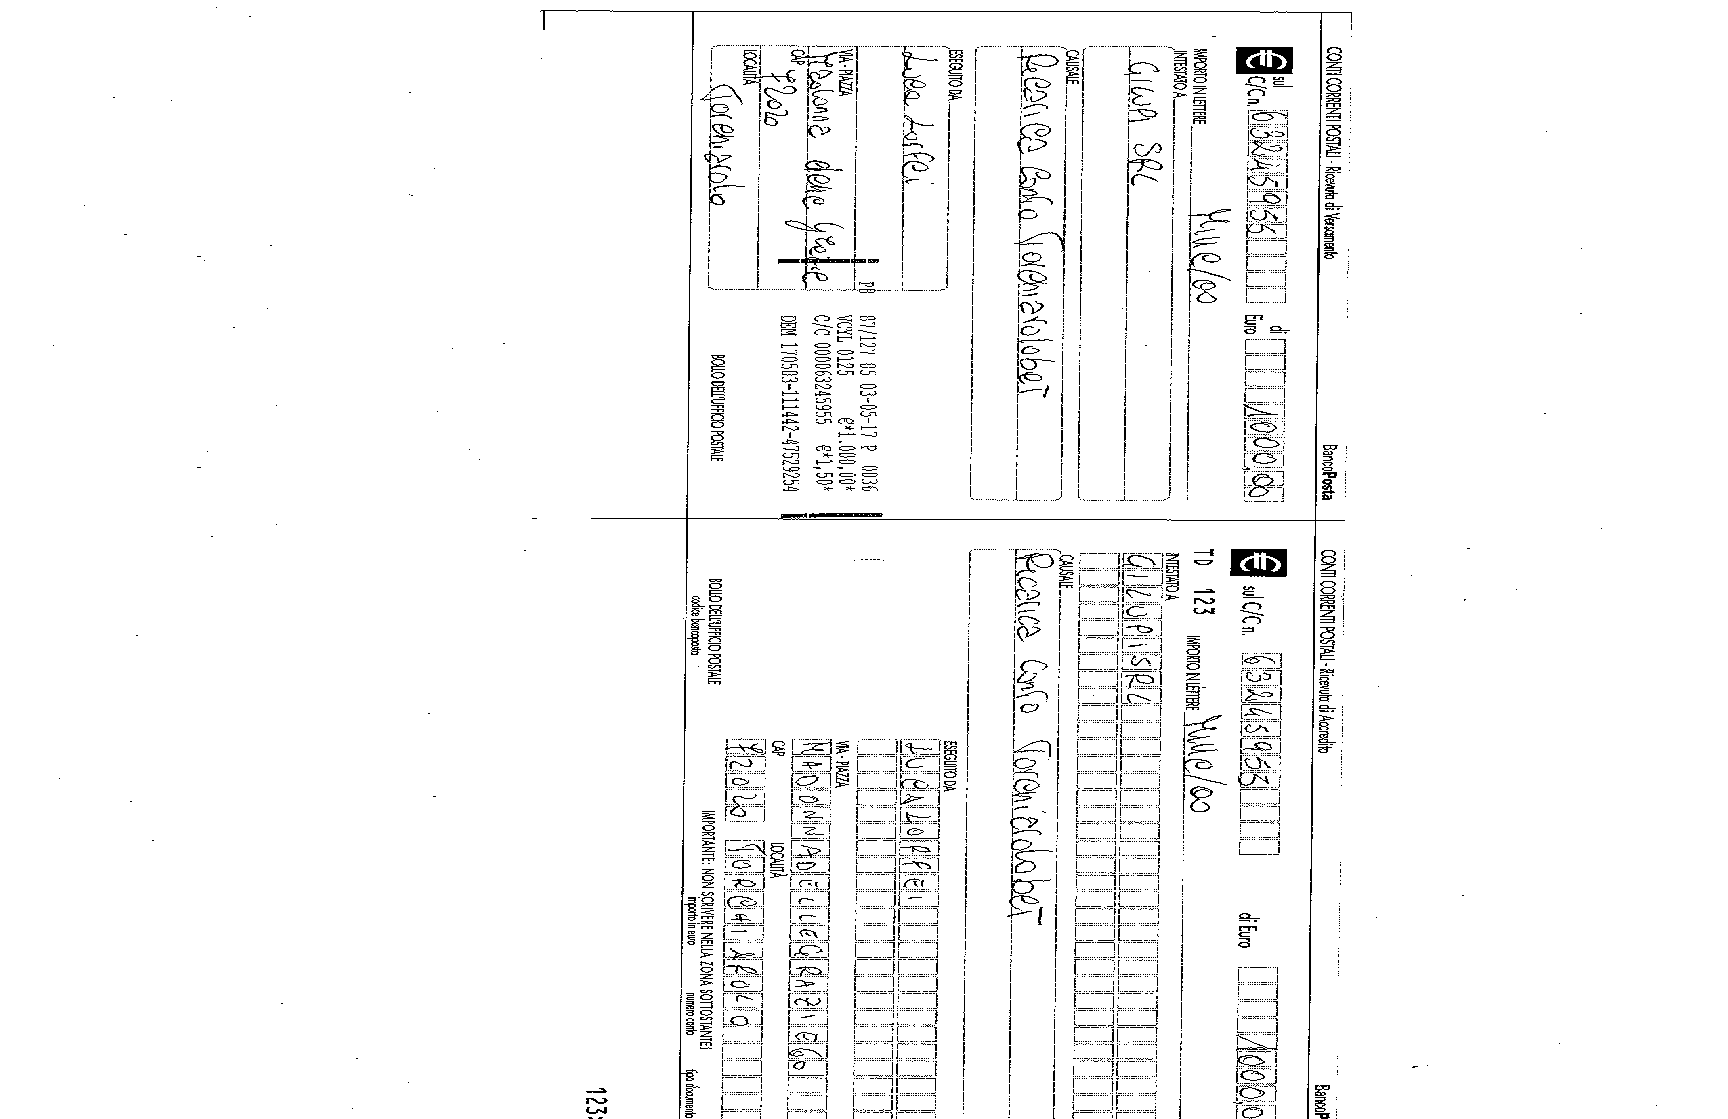 CONTI CORRENTI POSTALI - Ricevuta di Versamento
BancoPosta
€ sul C/C n. 63245955 di Euro 1000,00
IMPORTO IN LETTERE Mille/00
INTESTATO A
SRL
CAUSALE
Ricarica Conto
ESEGUITO DA
Luca
VIA - PIAZZA
Madonna delle Grazie
CAP
72020
LOCALITÀ
Torchiarolo
87/127 85 03-05-17 P 0036
VCYL 0125 €*1.000,00*
C/C 000063245955 €*1,50*
BOLLO DELL'UFFICIO POSTALE
CONTI CORRENTI POSTALI - Ricevuta di Accredito
BancoP
€ sul C/C n. 63245955 di Euro 1000,0
TD 123 IMPORTO IN LETTERE Mille/00
INTESTATO A
SRL
CAUSALE
Ricarica Conto
ESEGUITO DA
VIA - PIAZZA
MADONNA DELLE GRAZIE 60
CAP LOCALITÀ
72020 TORCHIAROLO
BOLLO DELL'UFFICIO POSTALE
codice bancoposta
IMPORTANTE: NON SCRIVERE NELLA ZONA SOTTOSTANTE!
importo in euro numero conto tipo documento